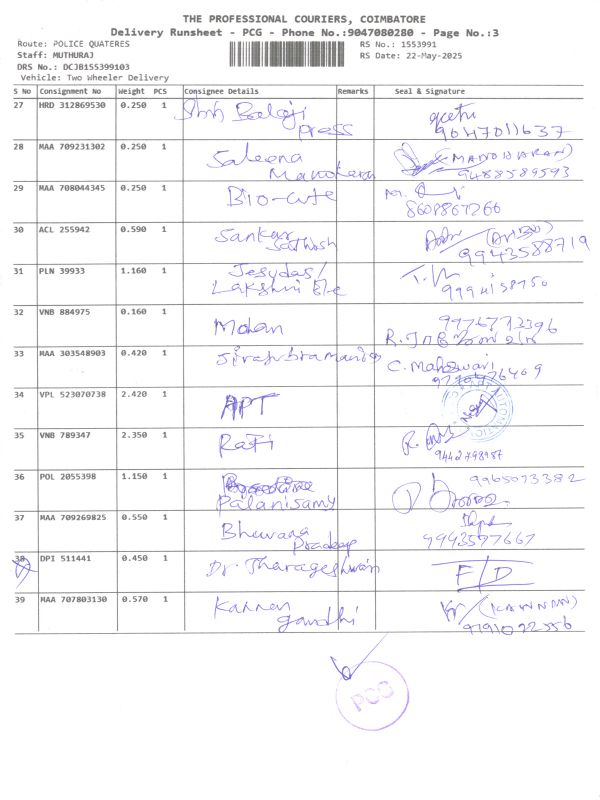 THE PROFESSIONAL COURIERS, COIMBATORE
Delivery Runsheet - PCG - Phone No.:9047080280 - Page No.:3
Route: POLICE QUATERES
RS No.: 1553991
Staff: MUTHURAJ
RS Date: 22-May-2025
DRS No.: DCJB155399103
Vehicle: Two Wheeler Delivery
S No Consignment No Weight PCS Consignee Details Remarks Seal & Signature
27 HRD 312869530 0.250 1 Balaji
press
9047011637
28 MAA 709231302 0.250 1 Saleena (MANOHARAN)
9488589593
29 MAA 708044345 0.250 1 Bio-cute
8608867266
30 ACL 255942 0.590 1 Sankar
Santhosh
9943588719
31 PLN 39933 1.160 1 Jesydas/
Lakshmi Ele
32 VNB 884975 0.160 1 Mohan
33 MAA 303548903 0.420 1 C. Maheswari
34 VPL 523070738 2.420 1 APT
35 VNB 789347 2.350 1 Rafi
9442798987
36 POL 2055398 1.150 1 9965073382
Palanisamy
37 MAA 709269825 0.550 1 Bhuvana
Pradeep
9943577667
38 DPI 511441 0.450 1 Dr. Tharageshwari F/D
39 MAA 707803130 0.570 1 Kannan (KANNAN)
gandhi
9791022556
PCG